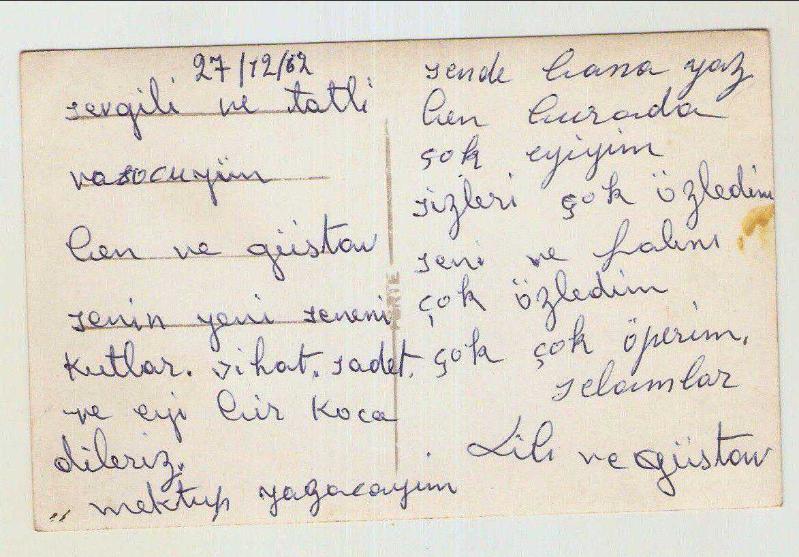 27/12/62
sevgili ve tatli
vasocuyün
ben ve güstav
senin yeni seneni
kutlar. sihat. sadet.
ve eyi bir koca
dileriz.
mektup yazacayim
FORTE
sende bana yaz
ben burada
çok eyiyim
sizleri çok özledim
seni ve
çok özledim
çok çok öperim.
selamlar
Lili ve güstav